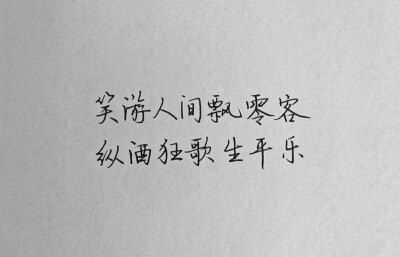 笑游人间飘零客
纵酒狂歌生平乐